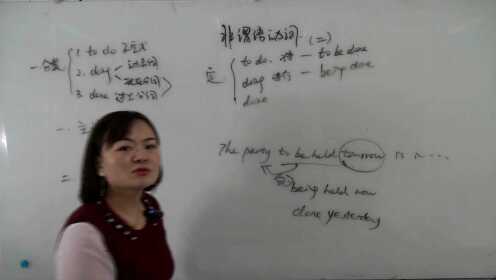 非谓语动词(二)
一分类 1. to do 不定式
2. doing 动名词
现在分词
3. done 过去分词
定 to do. 将 — to be done
doing 进行 — being done
done
一. 主
The party to be held tomorrow is a ....
being held now
done yesterday
二